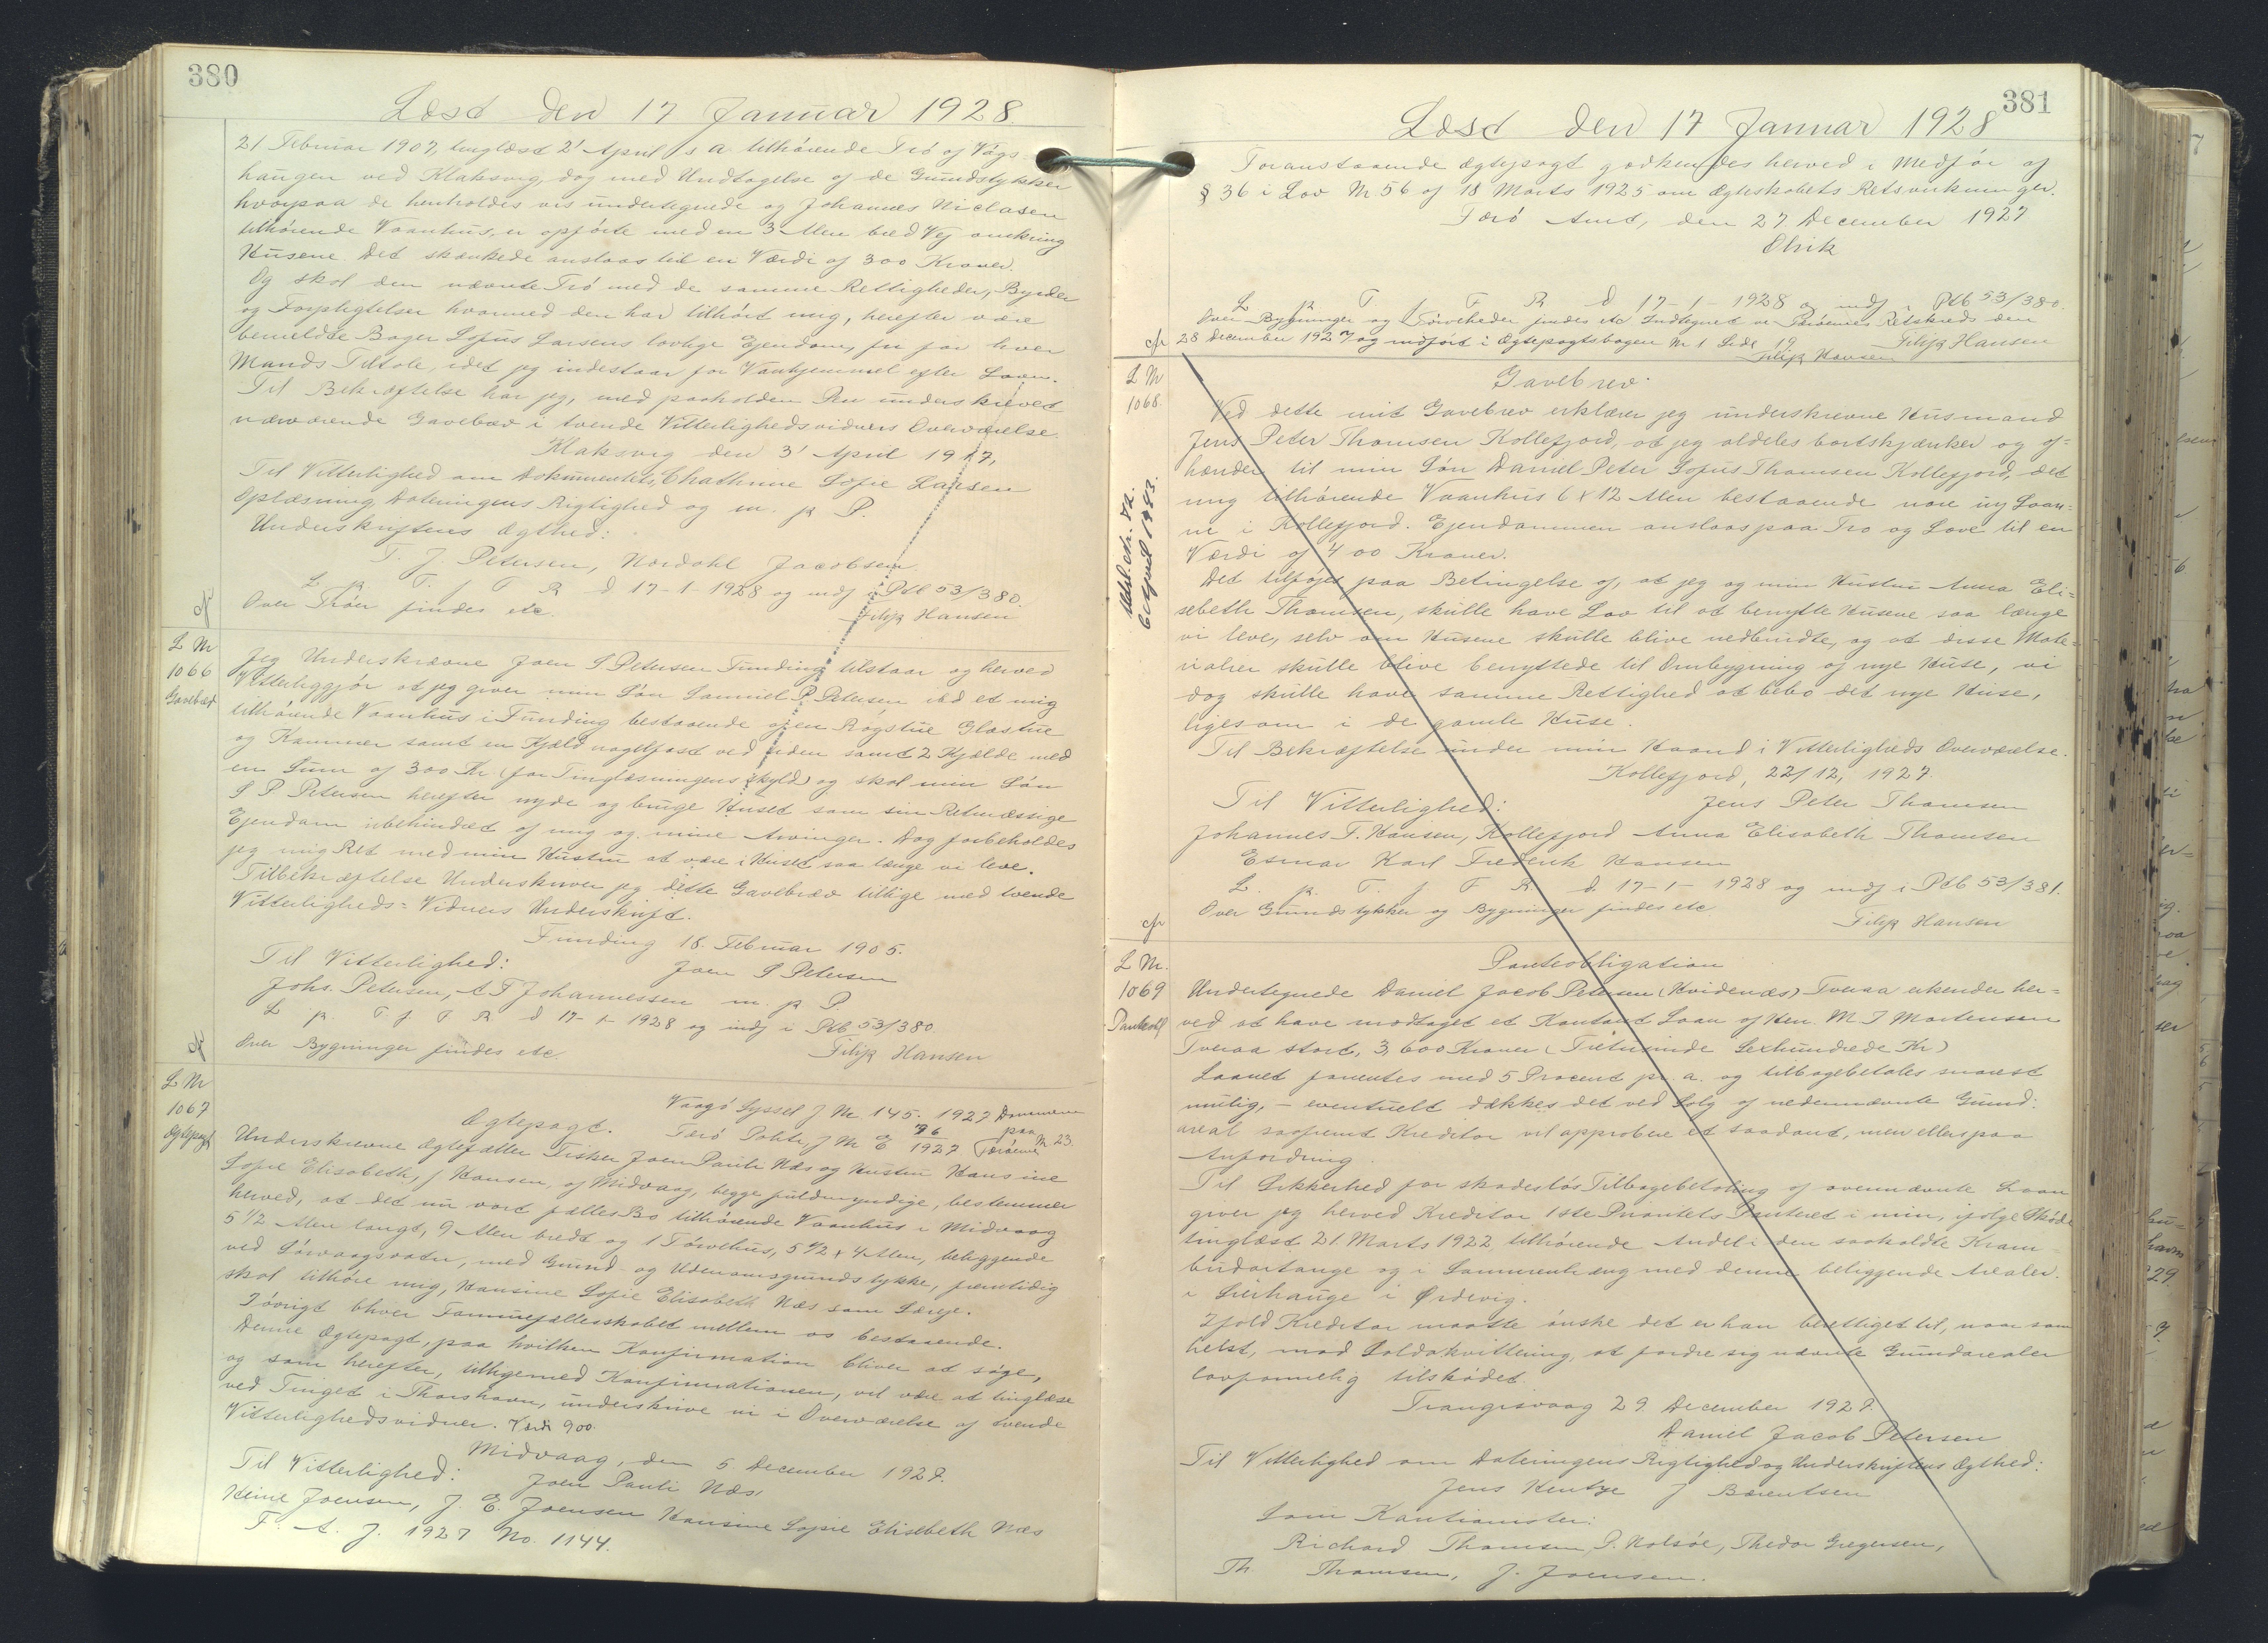 380
Læst den 17 Januar 1928.
21 Februar 1907, tinglæst 2' April s a tilhørende Trø af Vágs-
haugen ved Klaksvig, dog med Undtagelse af de Grundstykker
hvorpaa de henholdes vis undertegnede og Johannes Niclasen
tilhørende Vaanhus, er opførte med en 3 Alen bred Vej omkring
Husene. Det skænkede anslaas til en Værdi af 300 Kroner.
Og skal den nævnte Trø med de samme Rettigheder, Byrder
og Forpligtelser hvormed den har tilhørt mig, herefter være
bemeldte Bager Sofus Larsens lovlige Ejendom, fri for hver
Mands Tiltale, idet jeg indestaar for Vanhjemmel efter Loven.
Til Bekræftelse har jeg, med paaholden Pen underskrevet
nærværende Gavebrev i tvende Vitterlighedsvidners Overværelse.
Klaksvig den 3' April 1917,
Til Vitterlighed om Dokumentets Chathrine Sofie Larsen
Oplæsning, Dateringens Rigtighed og m. p P.
Underskriftens Ægthed:
T. J. Petersen, Nordahl Jacobsen
L p. T. f F R d 17-1-1928 og indf i Ptb 53/380.
Over Trøer findes etc. Filip Hansen
cfr
L Nr
1066
Gavebrev
Jeg Underskrevne Joen S Petersen Funding tilstaar og herved
Vitterliggjør at jeg giver min Søn Samuel P. Petersen ibd et mig
tilhørende Vaanhus i Funding bestaaende af en Rogstue Glastue
og Kammer samt en Kjeld nagelfast ved siden samt 2 Kjelde med
en Sum af 300 Kr (for Tinglæsningens skyld) og skal min Søn
S P Petersen herefter nyde og bruge Huset som sin Retmæssige
Ejendom ubehindret af mig og mine Arvinger. Dog forbeholdes
jeg mig Ret med min Hustru at være i Huset saa længe vi leve.
Tilbekræftelse Underskriver jeg dette Gavebrev tillige med tvende
Vitterligheds=Vidners Underskrift.
Funding 18. Februar 1905.
Til Vitterlighed: Joen S Petersen
Johs. Petersen, A F Johannessen m. p P.
L p. T. f. F R d 17-1-1928 og indf i Ptb 53/380.
Over Bygninger findes etc Filip Hansen
cfr
L Nr
1067
Ægtepagt
Vaagø Syssel J Nr 145. 1927
Ægtepagt. Færø Politi J Nr E 96/1927 Dommeren paa Færøerne Nr 23.
Underskrevne Ægtefæller Fisker Joen Pauli Næs og Hustru Hansine
Sofie Elisabeth, f Hansen, af Midvaag, begge fuldmyndige, bestemmer
herved, at det nu vort fælles Bo tilhørende Vaanhus i Midvaag
5 1/2 Alen langt, 9 Alen bredt og 1 Tørvehus, 5 1/2 x 4 Alen, beliggende
ved Sørvaagsvatn, med Grund og Udenomsgrundstykke, fremtidig
skal tilhøre mig, Hansine Sofie Elisabeth Næs som Særeje.
Iøvrigt bliver Formuefællesskabet mellem os bestaaende.
Denne Ægtepagt, paa hvilken Konfirmation bliver at søge,
og som herefter, tilligemed Konfirmationen, vil være at tinglæse
ved Tinget i Thorshavn, underskrive vi i Overværelse af tvende
Vitterlighedsvidner. Værdi 900.
Midvaag, den 5 December 1927.
Til Vitterlighed: Joen Pauli Næs,
Heine Joensen, J. E. Joensen Hansine Sofie Elisebeth Næs
F. A. J. 1927 No. 1144.
381
Læst den 17 Januar 1928
Foranstaaende Ægtepagt godkendes herved i Medfør af
§ 36 i Lov Nr 56 af 18 Marts 1925 om Ægteskabets Retsvirkninger.
Færø Amt, den 27 December 1927
Elnik
L p T f F R d 17-1-1928 og indf i Ptb 53/380.
Over Bygninger og Tørveheder findes etc Indtegnet ved Færøernes Retskreds den
28 December 1927 og indført i Ægtepagtsbogen Nr 1 Side 19 Filip Hansen
Filip Hansen
cfr
L Nr
1068.
Gavebrev.
Ved dette mit Gavebrev erklærer jeg underskrevne Husmand
Jens Peter Thomsen Kollefjord, at jeg aldeles bortskjænker og af=
hænder til min Søn Daniel Peter Sofus Thomsen Kollefjord, det
mig tilhørende Vaanhus 6 x 12 Alen bestaaende
i Kollefjord. Ejendommen anslaas paa Tro og Love til en
Værdi af 400 Kroner.
Det tilføjes paa Betingelse af, at jeg og min Hustru Anna Eli=
sebeth Thomsen, skulle have Lov til at benytte Husene saa længe
vi leve, selv om Husene skulle blive nedbrudte, og at disse Mate=
rialier skulle blive benyttede til Ombygning af nye Huse, vi
dog skulle have samme Rettighed at bebo det nye Huse,
ligesom i de gamle Huse.
Til Bekræftelse under min Haand i Vitterligheds Overværelse.
Kollefjord, 22/12, 1927.
Til Vitterlighed: Jens Peter Thomsen
Johannes F. Hansen, Kollefjord Anna Elisabeth Thomsen
Esmar Karl Frederik Hansen
L. p. T. f F R d 17-1-1928 og indf i Ptb 53/381.
Over Grundstykker og Bygninger findes etc. Filip Hansen
cfr
L Nr.
1069
Panteobl
Panteobligation
Undertegnede Daniel Jacob Petersen (Kvidenæs) Tveraa erkender her=
ved at have modtaget et Kontant Laan af Herr. M J Mortensen
Tveraa stort, 3,600 Kroner (Tretusinde Sexhundrede Kr)
Laanet forrentes med 5 Procent pr. a. og tilbagebetales snarest
mulig, - eventuelt dækkes det ved Salg af nedennævnte Grund:
areal saafremt Kreditor vil approbere et saadant, men ellers paa
Anfordring.
Til Sikkerhed for skadesløs Tilbagebetaling af ovennævnte Laan
giver jeg herved Kreditor 1ste Prioritets Panteret i min, ifølge Skøde
tinglæst 21. Marts 1922, tilhørende Andel i den saakaldte Kram=
budartange og i Sammenhæng med denne beliggende Arealer.
i Ørdevig.
Ifald Kreditor maatte ønske det er han berettiget til, naar som
helst, mod Saldokvittering, at fordre sig nævnte Grundarealer
lovformelig tilskødet.
Trangisvaag 29 December 1927.
Daniel Jacob Petersen
Til Vitterlighed om Dateringens Rigtighed og Underskriftens Ægthed:
Jens Hentze J Bærentsen
Som Kautionister:
Richard Thomsen, P. Nolsøe, Thedor Gregersen,
Th Thomsen, J. Joensen.